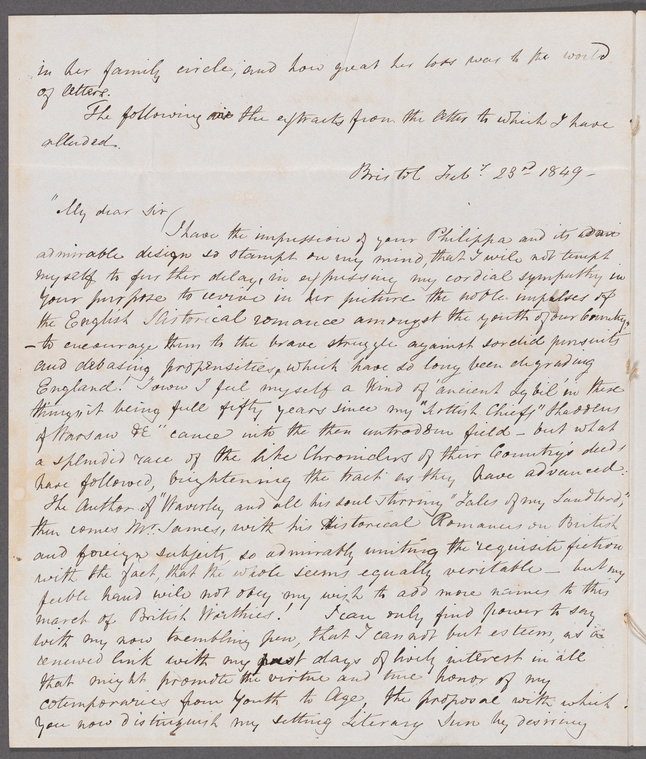 in her family circle; and how great her loss was to the world
of letters.
The following are the extracts from the letter to which I have
alluded.
Bristol Feby. 23rd 1849 –
"My dear Sir/
I have the impression of your Philippa and its
admirable design so stampt on my mind that I will not tempt
myself to further delay, in expressing my cordial sympathy in
Your purpose to revive in her picture the noble impulses of
the English Historical romance amongst the youth of our Country,
– to encourage them to the brave struggle against sordid pursuits
and debasing propensities, which have so long been degrading
England! I own I feel myself a kind of ancient Sybil in these
things it being full fifty years since my "Scottish Chiefs" Thaddeus
of Warsaw &c" came into the then untrodden field – but what
a splendid race of the like Chroniclers of their Country's deeds
have followed, brightening the track as they have advanced:
The Author of "Waverley, and all his soul stirring "Tales of my Landlord,"
then comes Mr. James, with his Historical Romances on British
and foreign subjects, so admirably uniting the requisite fiction
with the fact, that the whole seems equally veritable – but my
feeble hand will not obey my wish to add more names to this
march of British Worthies! I can only find power to say
with my now trembling pen, that I can not but esteem, as a
renewed link with my past days of lively interest in all
that might promote the virtue and true honor of my
cotemporaries from Youth to Age, the proposal with which
You now distinguish my setting Literary Sun by desiring